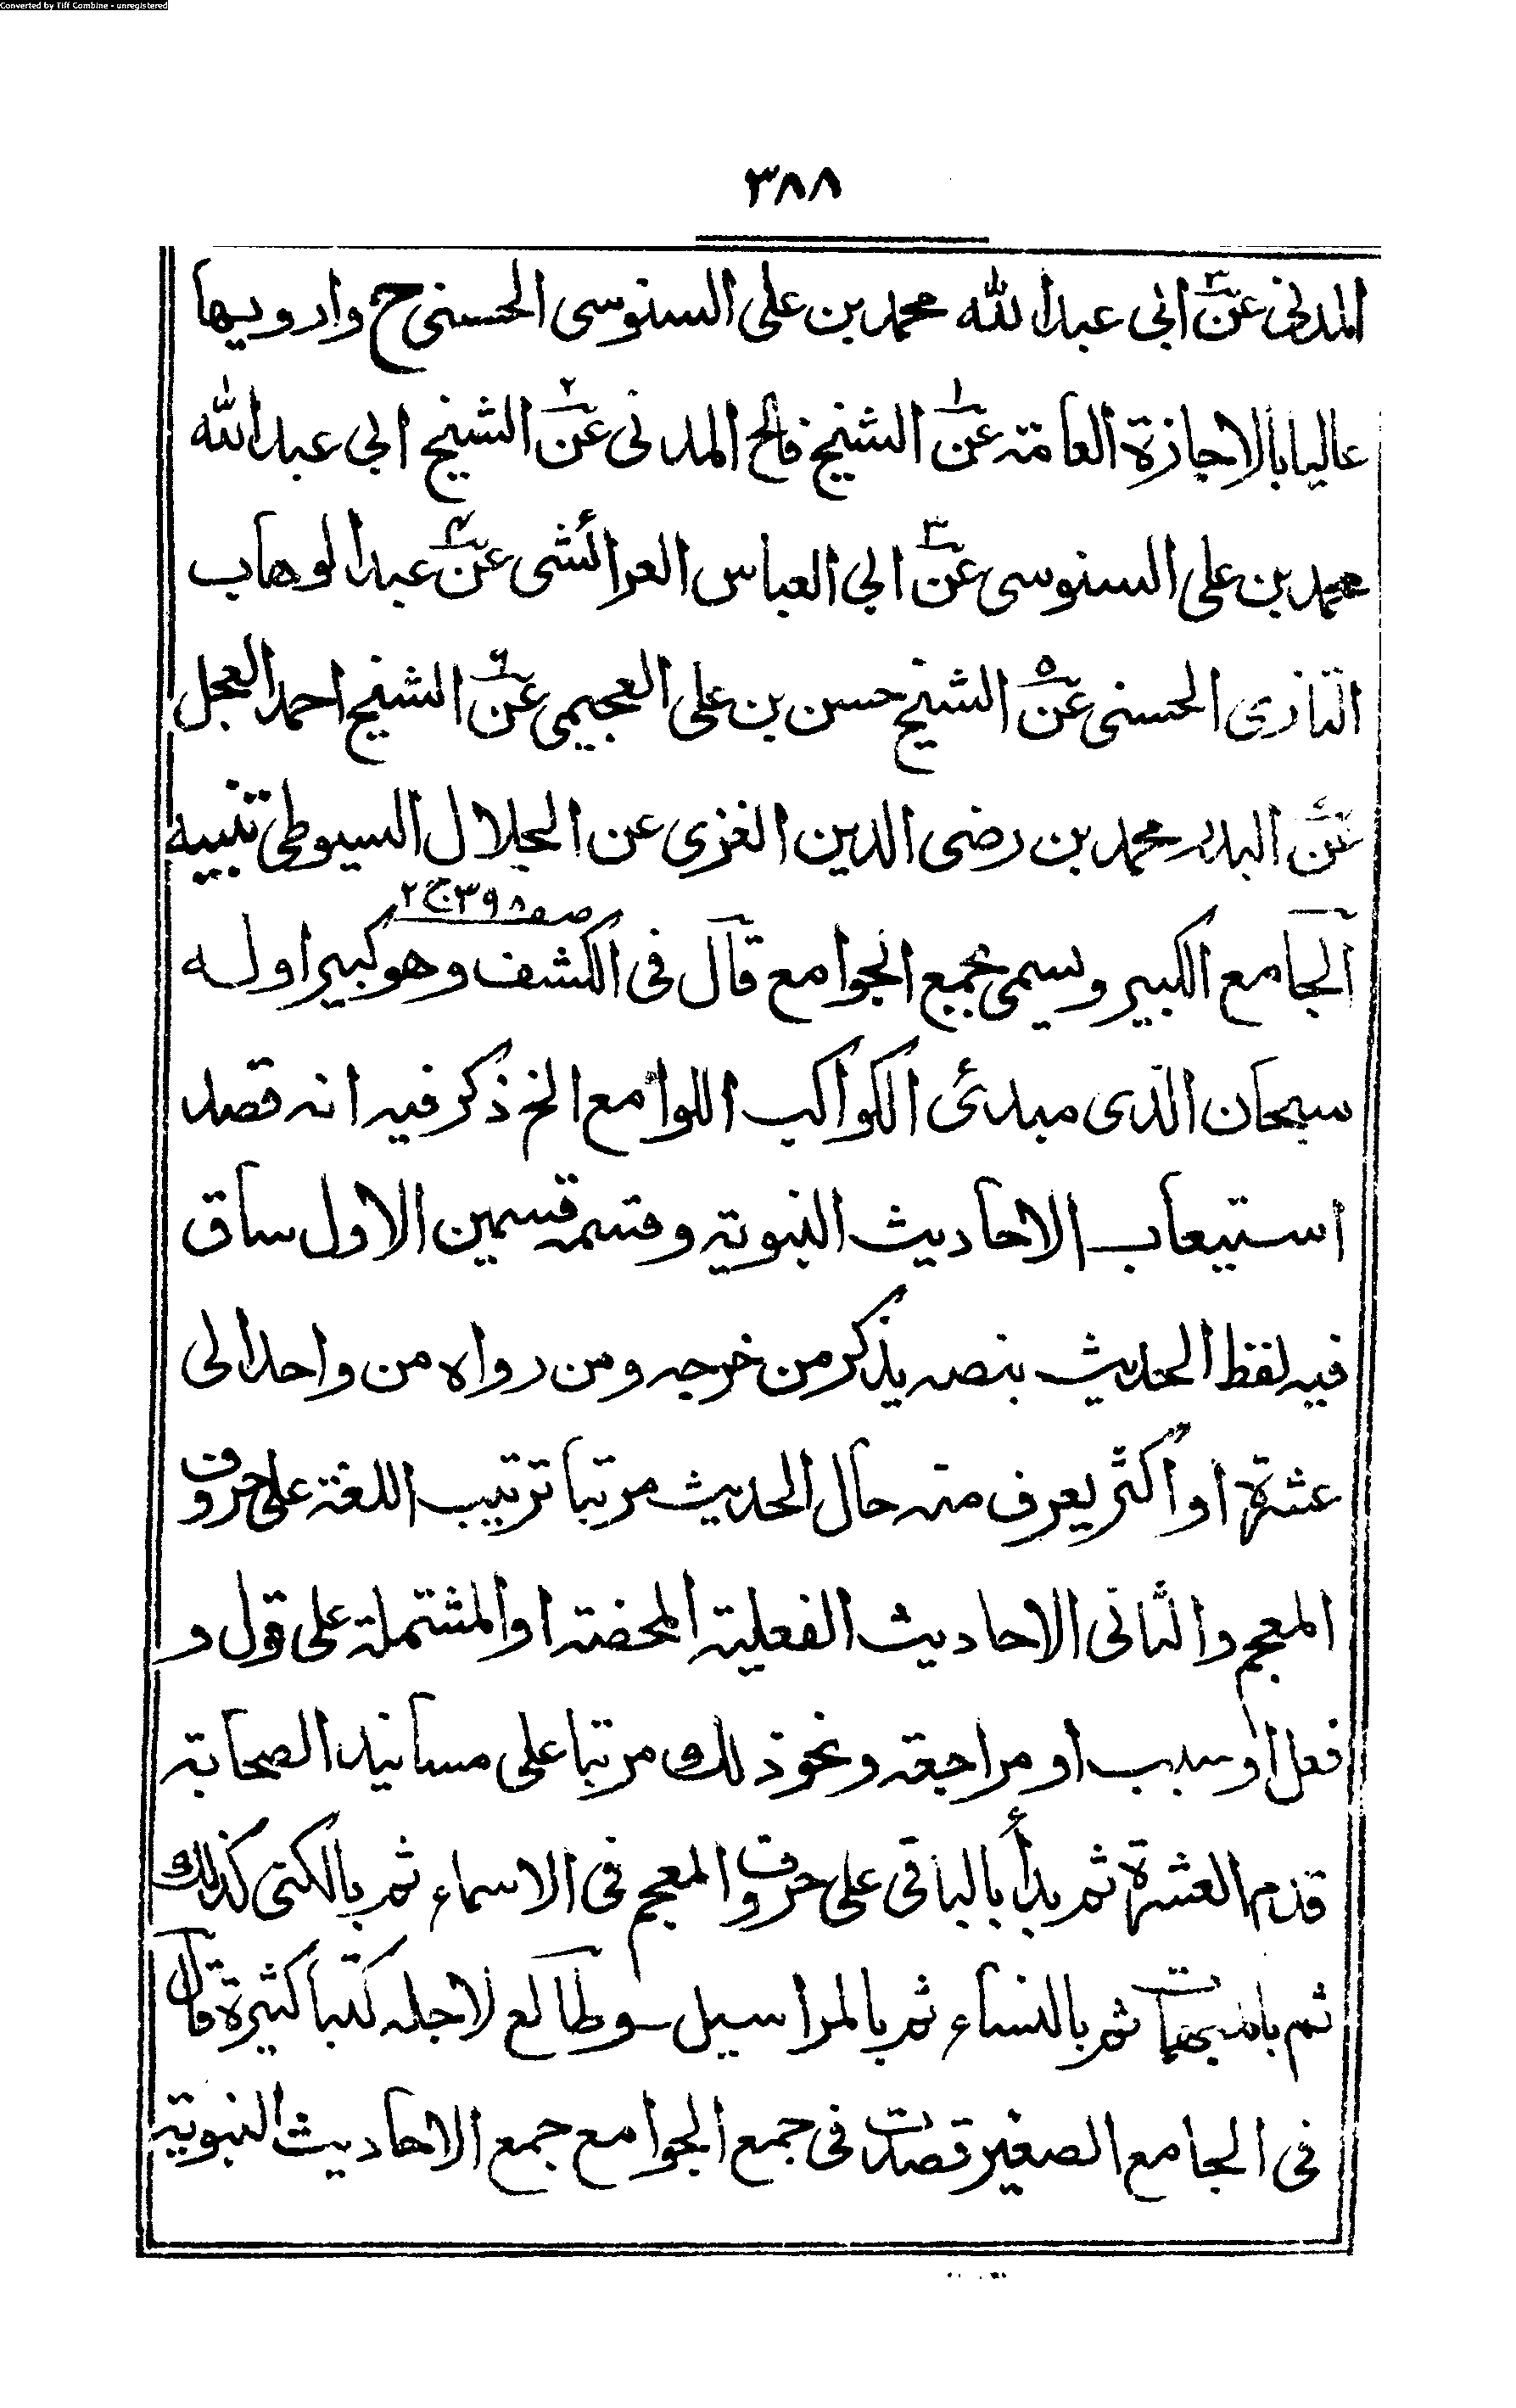 Converted by Tiff Combine - unregistered
٣٨٨
المدنی عن٣ ابی عبدالله محمد بن علی السنوسی الحسنی ح وارویها
عالیا بالاجازة العامة عن١ الشیخ فالح المدنی عن٢ الشیخ ابی عبدالله
محمد بن علی السنوسی عن٣ ابی العباس العرائشی عن٤ عبدالوهاب
التازی الحسنی عن٥ الشیخ حسن بن علی العجیمی عن٦ الشیخ احمد العجل
عن البدر محمد بن رضی الدین الغزی عن الجلال السیوطی تنبیه
صه ٣٩٨ ج٢
الجامع الکبیر ویسمی بجمع الجوامع قال فی الکشف وهو کبیر اوله
سبحان الذی مبدئ الکواکب اللوامع الخ ذکر فیه انه قصد
استیعاب الاحادیث النبویة وقسمه قسمین الاول ساق
فیه لفظ الحدیث بنصه یذکر من خرجه ومن رواه من واحد الی
عشرة او اکثر یعرف منه حال الحدیث مرتبا ترتیب اللغة علی حروف
المعجم والثانی الاحادیث الفعلیة المحضة او المشتملة علی قول و
فعل او سبب او مراجعة ونحو ذلك مرتبا علی مسانید الصحابة
قدم العشرة ثم بدأ بالباقی علی حروف المعجم فی الاسماء ثم بالکنی کذلك
ثم بالمبهمات ثم بالنساء ثم بالمراسیل وطالع لاجله کتبا کثیرة قال
فی الجامع الصغیر قصدت فی جمع الجوامع جمع الاحادیث النبویة